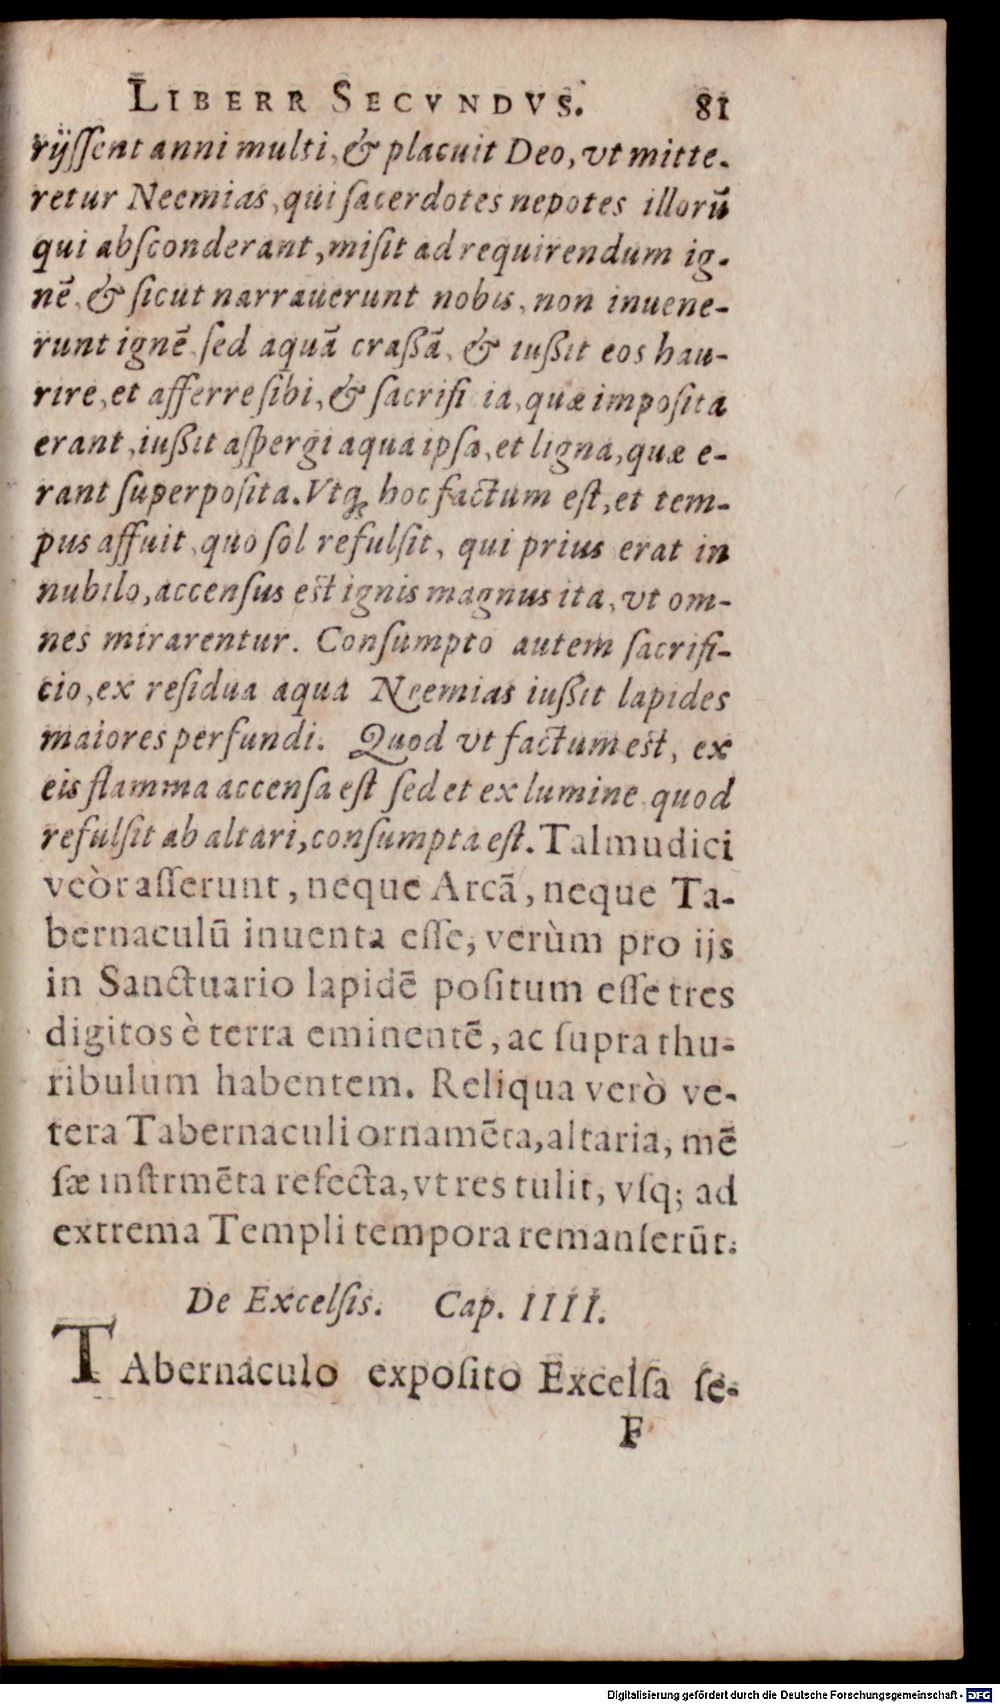 LIBERR SECVNDVS. 81
rijſſent anni multi, & placuit Deo, vt mitte-
retur Neemias, qui ſacerdotes nepotes illorū
qui abſconderant, miſit ad requirendum ig-
nē, & ſicut narrauerunt nobis, non inuene-
runt ignē, ſed aquā craſſā, & iuſſit eos hau-
rire, et afferre ſibi, & ſacrifi ia, quæ impoſita
erant, iuſſit aſpergi aqua ipſa, et ligna, quæ e-
rant ſuperpoſita. Vtq; hoc factum eſt, et tem-
pus affuit, quo ſol refulſit, qui prius erat in
nubilo, accenſus eſt ignis magnus ita, vt om-
nes mirarentur. Conſumpto autem ſacrifi-
cio, ex reſidua aqua Neemias iuſſit lapides
maiores perfundi. Quod vt factum eſt, ex
eis flamma accenſa eſt ſed et ex lumine quod
refulſit ab altari, conſumpta eſt. Talmudici
veòr aſſerunt, neque Arcā, neque Ta-
bernaculū inuenta eſſe, verùm pro ijs
in Sanctuario lapidē poſitum eſſe tres
digitos è terra eminentē, ac ſupra thu-
ribulum habentem. Reliqua verò ve-
tera Tabernaculi ornamēta, altaria, mē
ſæ inſtrmēta refecta, vt res tulit, vſq; ad
extrema Templi tempora remanſerūt.
De Excelſis. Cap. IIII.
TAbernaculo expoſito Excelſa ſe-
F
Digitalisierung gefördert durch die Deutsche Forschungsgemeinschaft - DFG